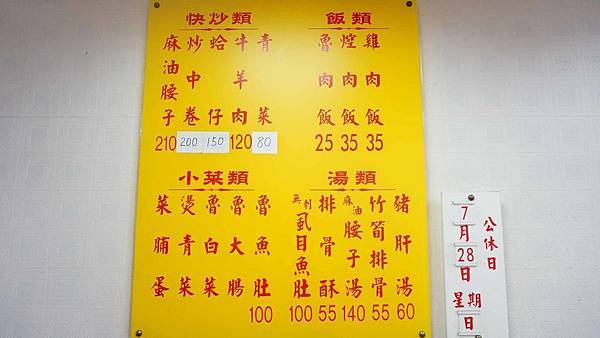 快炒類
麻油腰子 210
炒中卷 200
蛤仔 150
牛羊肉 120
青菜 80
飯類
魯肉飯 25
焢肉飯 35
雞肉飯 35
小菜類
菜脯蛋
燙青菜
魯白菜
魯大腸
魯魚肚 100
湯類
無刺虱目魚肚 100
排骨酥 55
麻油腰子湯 140
竹筍排骨 55
豬肝湯 60
公休日
7月28日
星期日